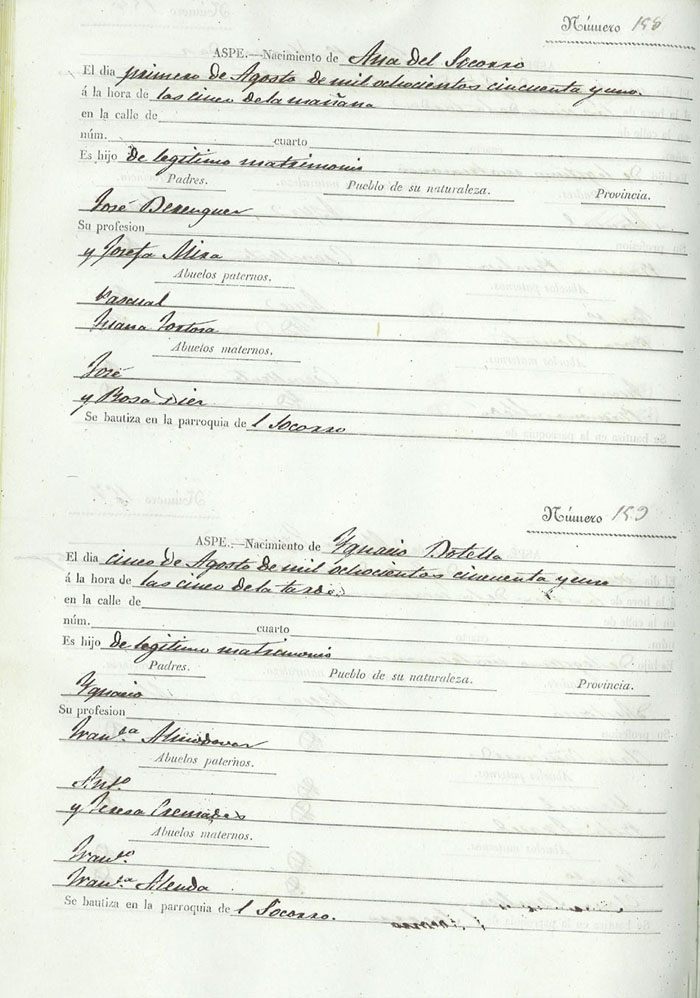 Número 158
ASPE.—Nacimiento de Ana del Socorro
El dia primero de Agosto de mil ochocientos cincuenta y uno.
á la hora de las cinco de la mañana
en la calle de
núm. cuarto
Es hijo de legitimo matrimonio
Padres. Pueblo de su naturaleza. Provincia.
José Berenguer
Su profesion
y Josefa Mira
Abuelos paternos.
Pascual
Juana Tortosa
Abuelos maternos.
José
y Rosa Dier
Se bautiza en la parroquia de l Socorro
Número 159
ASPE.—Nacimiento de Ygnacio Botella
El dia cinco de Agosto de mil ochocientos cincuenta y uno
á la hora de las cinco de la tarde
en la calle de
núm. cuarto
Es hijo de legitimo matrimonio
Padres. Pueblo de su naturaleza. Provincia.
Ygnacio
Su profesion
Franca Almodovar
Abuelos paternos.
Anto
y Teresa Cremades
Abuelos maternos.
Franco
Franca Alenda
Se bautiza en la parroquia de l Socorro.